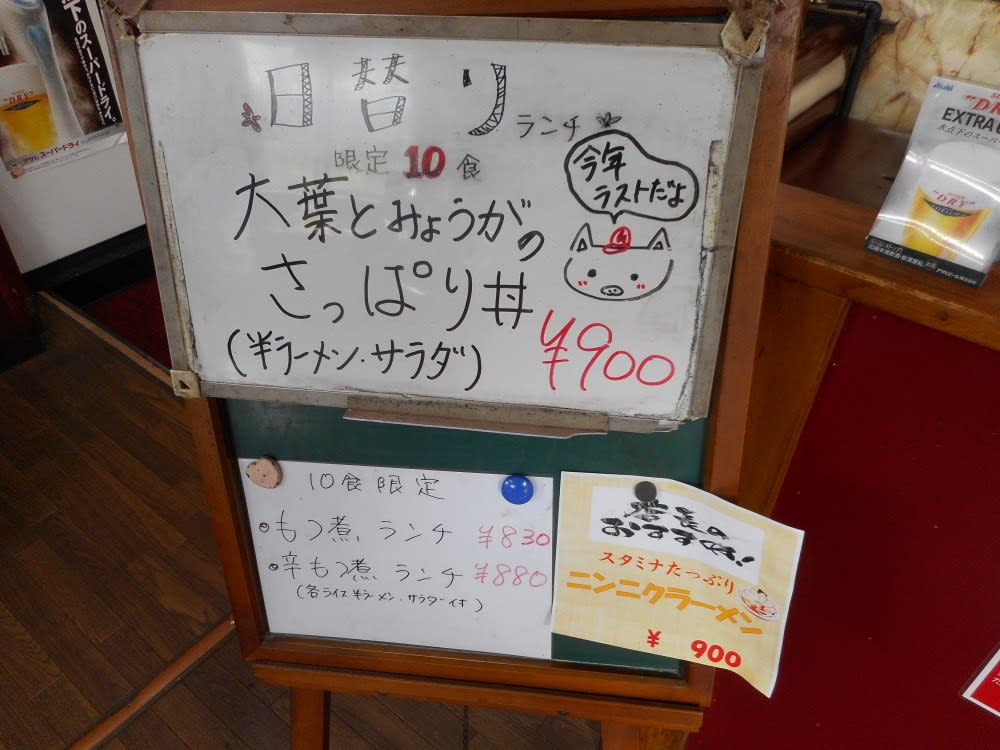 日替り ランチ
限定 10 食
今年
ラストだよ
大葉とみょうがの
さっぱり丼
(半ラーメン・サラダ) ¥900
10食限定
もつ煮 ランチ ¥830
辛もつ煮 ランチ ¥880
(各ライス 半ラーメン・サラダ付)
店長の
おすすめ!
スタミナたっぷり
ニンニクラーメン
¥ 900
下のスーパードライ。
"DRY"
アサヒスーパードライ
Asahi
EXTRA
氷点下のスーパー
"DRY"